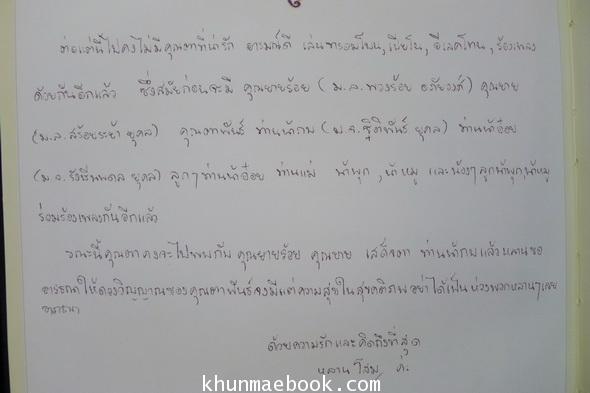 ต่อแต่นี้ไปคงไม่มีคุณตาที่น่ารัก อารมณ์ดี เล่นทรอมโบน, เปียโน, อีเลคโทน, ร้องเพลง
ด้วยกันอีกแล้ว ซึ่งสมัยก่อนจะมี คุณยายร้อย (ม.ล. พวงร้อย อภัยวงศ์) คุณยาย
(ม.ล. สร้อยระย้า ยุคล) คุณตาพันธุ์ ท่านน้าภพ (ม.จ. ฐิติพันธุ์ ยุคล) ท่านน้าอ๋อย
(ม.จ. รังษีนพดล ยุคล) ลูกๆท่านน้าอ๋อย ท่านแม่ น้าพุก, น้าหมู และน้องๆลูกน้าพุก, น้าหมู
ร่วมร้องเพลงกันอีกแล้ว
ขณะนี้คุณตาคงจะไปพบกับ คุณยายร้อย คุณยาย เสด็จตา ท่านน้าภพแล้ว หลานขอ
ให้ดวงวิญญาณของคุณตาพันธุ์จงมีแต่ความสุขในสุขคติภพ อย่าได้เป็นห่วงพวกหลานๆเลย
อาราธนา
ด้วยความรักและคิดถึงที่สุด
หลาน โสม ค่ะ
khunmaebook.com